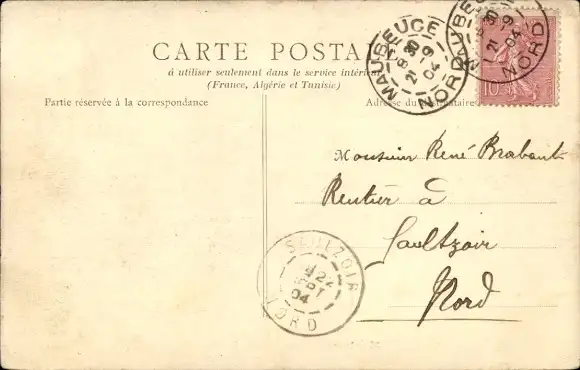 CARTE POSTA
à utiliser seulement dans le service intérieur
(France, Algérie et Tunisie)
Partie réservée à la correspondance
Adresse du destinataire
MAUBEUGE
8 30
21 -9
04
NORD
MAUBEUGE
30
21 -9
04
NORD
10
Monsieur René Brabant
Rentier à
Saultzoir
Nord
SAULZOIR
22
04
NORD